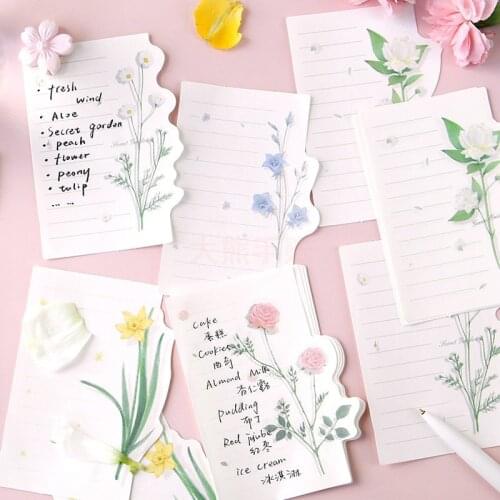 • fresh
wind
• Aloe
• Secret garden
• peach
• flower
• peony
• tulip
... ...
Cake
蛋糕
Cookies
曲奇
Almond Milk
杏仁露
pudding
布丁
Red jujube
红枣
ice cream
冰淇淋